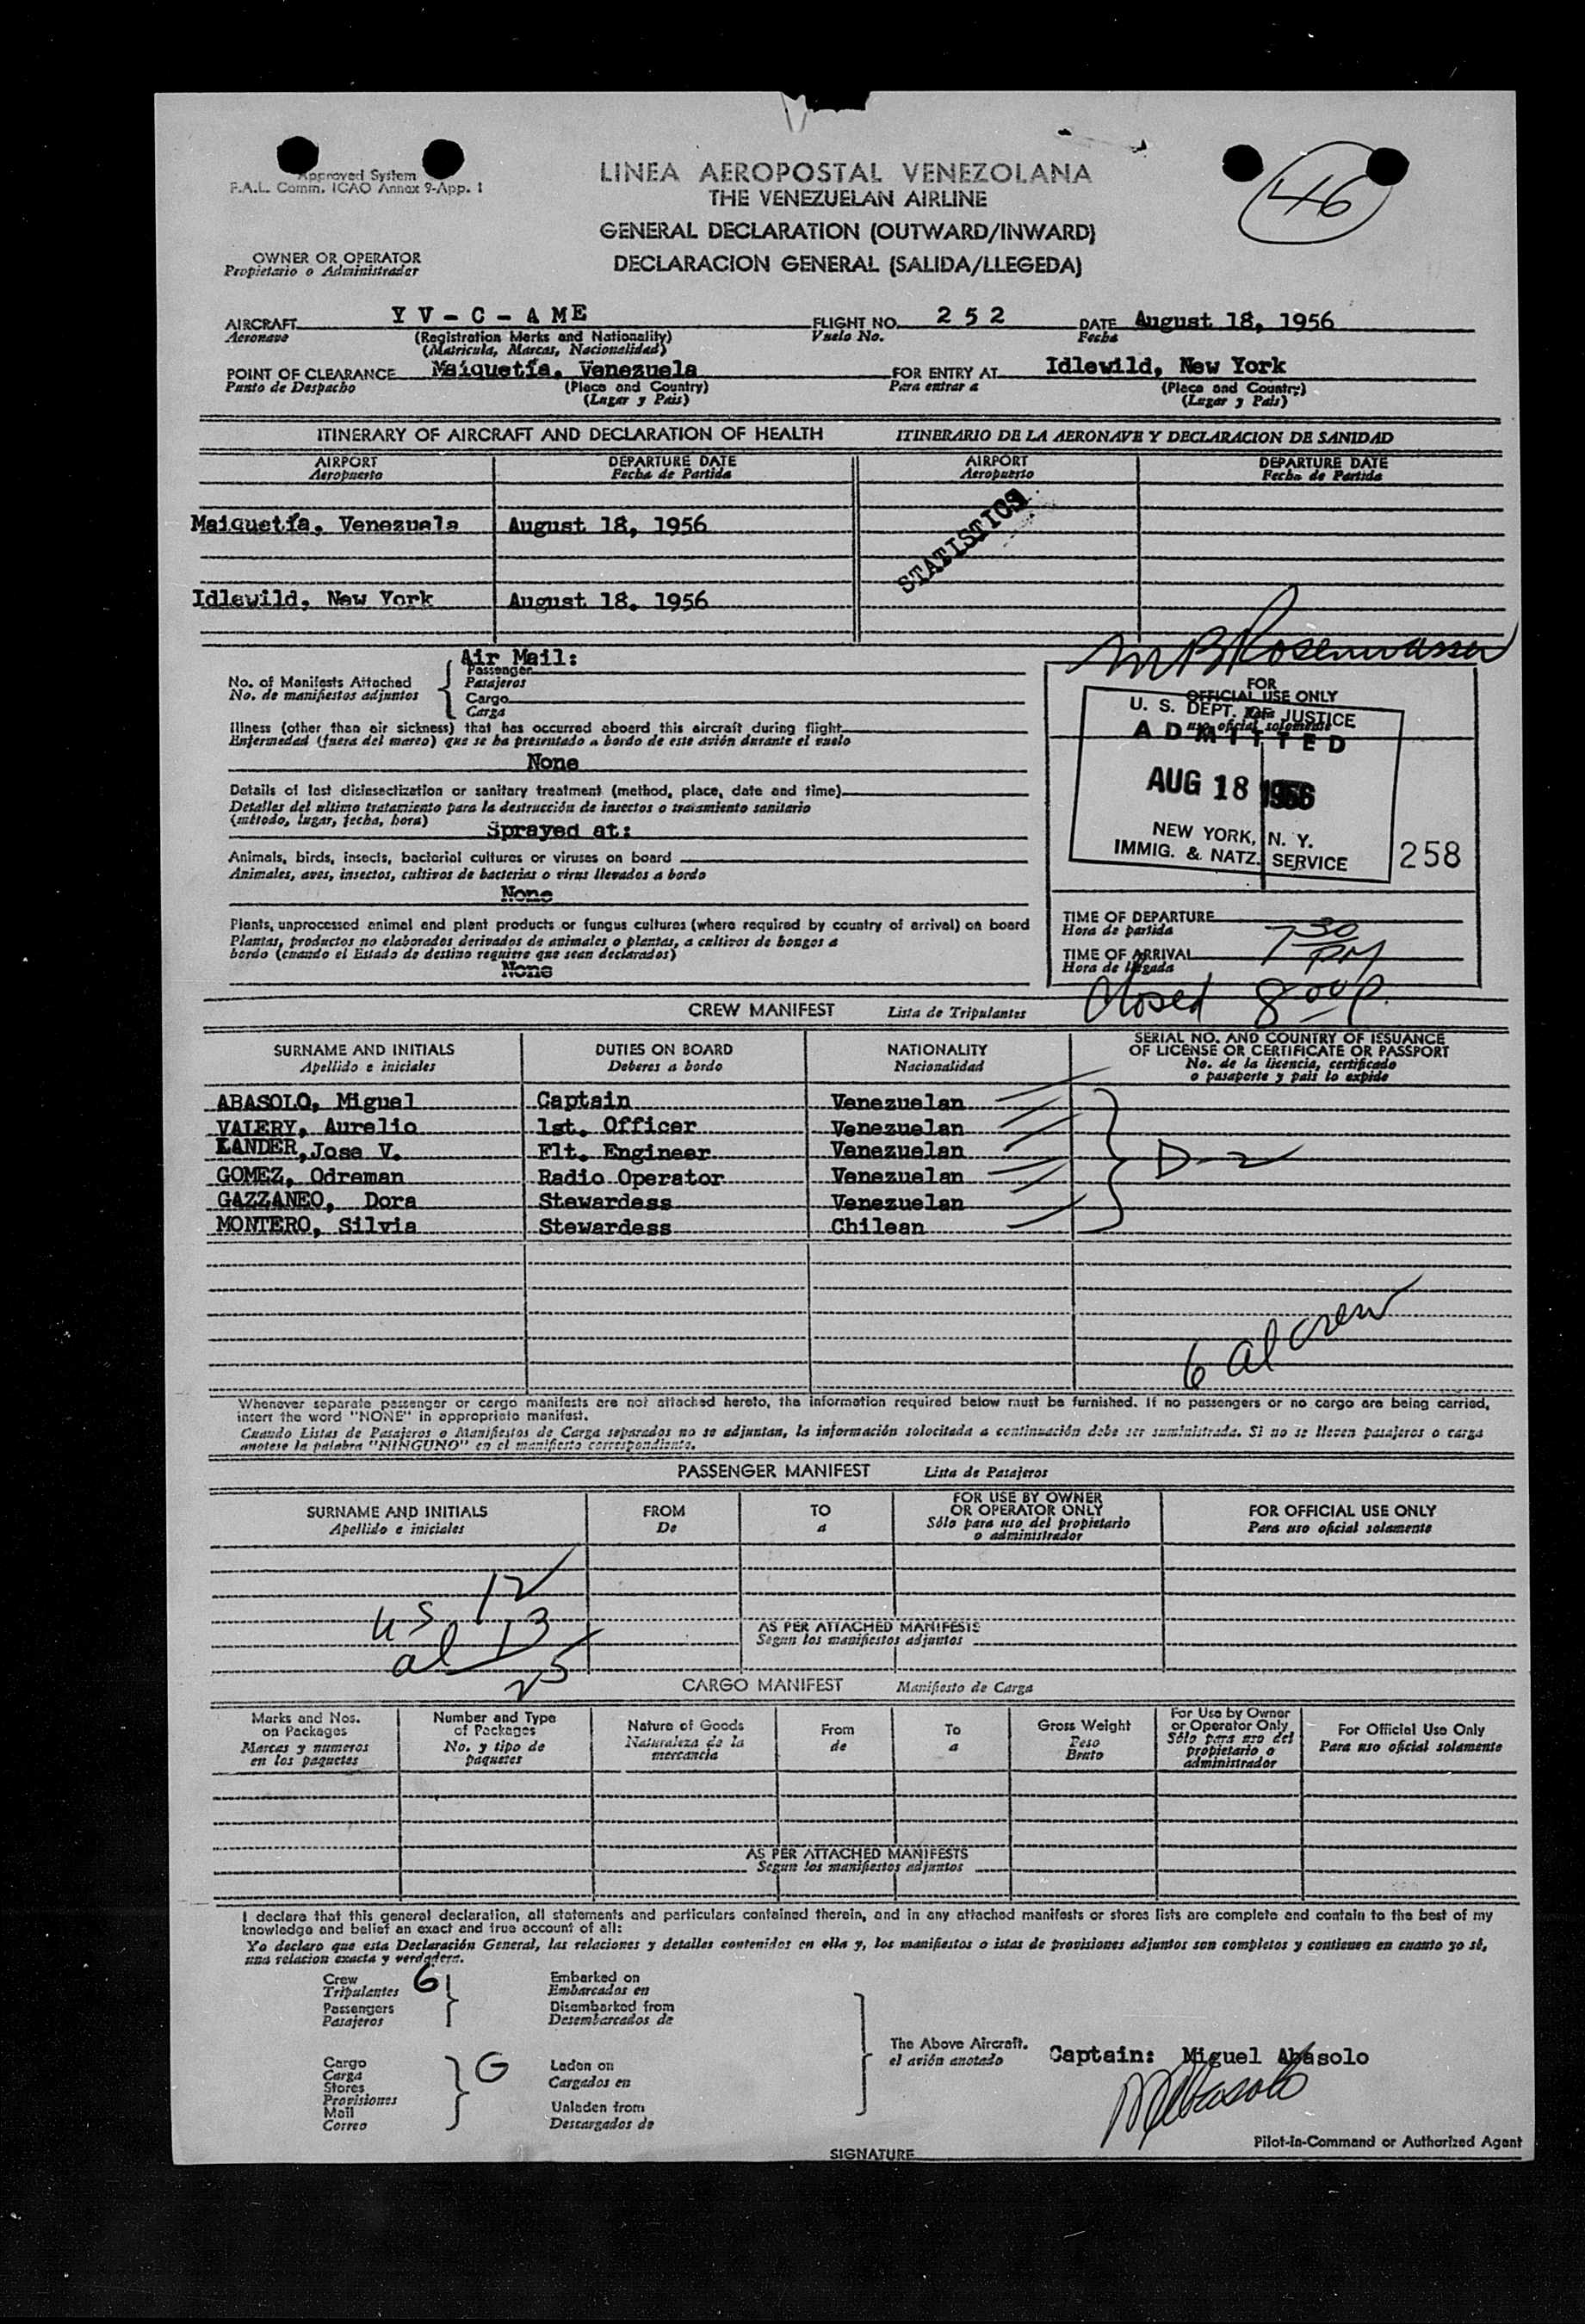 Approved System
F.A.L. Comm. ICAO Annex 9-App. 1
46
LINEA AEROPOSTAL VENEZOLANA
THE VENEZUELAN AIRLINE
GENERAL DECLARATION (OUTWARD/INWARD)
DECLARACION GENERAL (SALIDA/LLEGEDA)
OWNER OR OPERATOR
Propietario o Administrador
AIRCRAFT YV-C-AME FLIGHT NO. 252 DATE August 18, 1956
Aeronave (Registration Marks and Nationality) Vuelo No. Fecha
(Matricula, Marcas, Nacionalidad)
POINT OF CLEARANCE Maiquetía, Venezuela FOR ENTRY AT Idlewild, New York
Punto de Despacho (Place and Country) Para entrar a (Place and Country)
(Lugar y Pais) (Lugar y Pais)
ITINERARY OF AIRCRAFT AND DECLARATION OF HEALTH ITINERARIO DE LA AERONAVE Y DECLARACION DE SANIDAD
AIRPORT DEPARTURE DATE AIRPORT DEPARTURE DATE
Aeropuerto Fecha de Partida Aeropuerto Fecha de Partida
STATISTICS
Maiquetía, Venezuela August 18, 1956
Idlewild, New York August 18, 1956
M B Rosenwasser
Air Mail:
No. of Manifests Attached
No. de manifiestos adjuntos
Passenger
Pasajeros
Cargo
Carga
Illness (other than air sickness) that has occurred aboard this aircraft during flight
Enfermedad (fuera del mareo) que se ha presentado a bordo de este avión durante el vuelo
None
Details of last disinsectization or sanitary treatment (method, place, date and time)
Detalles del ultimo tratamiento para la destrucción de insectos o tratamiento sanitario
(método, lugar, fecha, hora)
Sprayed at:
Animals, birds, insects, bacterial cultures or viruses on board
Animales, aves, insectos, cultivos de bacterias o virus llevados a bordo
None
Plants, unprocessed animal and plant products or fungus cultures (where required by country of arrival) on board
Plantas, productos no elaborados derivados de animales o plantas, a cultivos de hongos a
bordo (cuando el Estado de destino requiere que sean declarados)
None
FOR
OFFICIAL USE ONLY
Para
uso oficial solamente
U. S. DEPT. OF JUSTICE
ADMITTED
AUG 18 1956
NEW YORK, N. Y.
IMMIG. & NATZ. SERVICE
258
TIME OF DEPARTURE
Hora de partida
TIME OF ARRIVAL 7 30 PM
Hora de llegada
Closed 8 00 P.
CREW MANIFEST Lista de Tripulantes
SURNAME AND INITIALS DUTIES ON BOARD NATIONALITY SERIAL NO. AND COUNTRY OF ISSUANCE
OF LICENSE OR CERTIFICATE OR PASSPORT
Apellido e iniciales Deberes a bordo Nacionalidad No. de la licencia, certificado
o pasaporte y pais lo expide
ABASOLO, Miguel Captain Venezuelan
VALERY, Aurelio 1st. Officer Venezuelan
LANDER, Jose V. Flt. Engineer Venezuelan
D-2
GOMEZ, Odreman Radio Operator Venezuelan
GAZZANEO, Dora Stewardess Venezuelan
MONTERO, Silvia Stewardess Chilean
6 al crew
Whenever separate passenger or cargo manifests are not attached hereto, the information required below must be furnished. If no passengers or no cargo are being carried,
insert the word "NONE" in appropriate manifest.
Cuando Listas de Pasajeros o Manifiestos de Carga separados no se adjuntan, la información solocitada a continuación debe ser suministrada. Si no se lleven pasajeros o carga
anotese la palabra "NINGUNO" en el manifiesto correspondiente.
PASSENGER MANIFEST Lista de Pasajeros
SURNAME AND INITIALS FROM TO FOR USE BY OWNER
OR OPERATOR ONLY FOR OFFICIAL USE ONLY
Apellido e iniciales De a Sólo para uso del propietario
o administrador Para uso oficial solamente
us 12
al 13
25
AS PER ATTACHED MANIFESTS
Segun los manifiestos adjuntos
CARGO MANIFEST Manifiesto de Carga
Marks and Nos.
on Packages
Marcas y numeros
en los paquetes
Number and Type
of Packages
No. y tipo de
paquetes
Nature of Goods
Naturaleza de la
mercancia
From
de
To
a
Gross Weight
Peso
Bruto
For Use by Owner
or Operator Only
Sólo para uso del
propietario o
administrador
For Official Use Only
Para uso oficial solamente
AS PER ATTACHED MANIFESTS
Segun los manifiestos adjuntos
I declare that this general declaration, all statements and particulars contained therein, and in any attached manifests or stores lists are complete and contain to the best of my
knowledge and belief an exact and true account of all:
Yo declaro que esta Declaración General, las relaciones y detalles contenidos en ella y, los manifiestos o istas de provisiones adjuntos son completos y contienen en cuanto yo sé,
una relacion exacta y verdadera.
Crew 6
Tripulantes
Passengers
Pasajeros
Embarked on
Embarcados en
Disembarked from
Desembarcados de
Cargo
Carga
Stores
Provisiones
Mail
Correo
G
Laden on
Cargados en
Unladen from
Descargados de
The Above Aircraft.
el avión anotado
Captain: Miguel Abasolo
MAbasolo
SIGNATURE
Pilot-in-Command or Authorized Agent